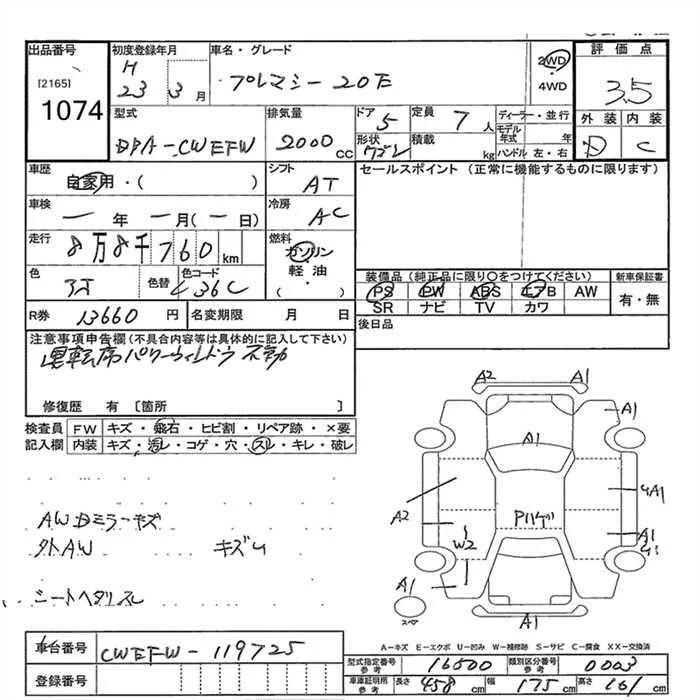 出品番号 初度登録年月 車名・グレード 評価点
[2165] H 2WD
1074 23 3月 プレマシー 20E ・4WD 3.5
型式 排気量 ドア 5 定員 7人 ディーラー・並行 外装 内装
DBA-CWEFW 2000cc 形状 ワゴン 積載 kg モデル年式 年 D C
ハンドル 左・右
車歴 シフト セールスポイント (正常に機能するものに限ります)
自家用・( ) AT
車検 冷房
一年 一月(一日) AC
走行 燃料
8万8千760km ガソリン
軽油
( )
色 色替 色コード 装備品(純正品に限り〇をつけてください) 新車保証書
36C PS PW ABS エアB AW 有・無
SR ナビ TV カワ
R券 13660円 名変期限 月 日 後日品
注意事項申告欄(不具合内容等は具体的に記入して下さい)
運転席パワーウィンドウ不動
修復歴 有 〔箇所 〕
検査員 FW キズ・飛石・ヒビ割・リペア跡・×要
記入欄 内装 キズ・汚レ・コゲ・穴・スレ・キレ・破レ
A2 A1
A1
A1
A2 A1
Pハゲ
W2 A1
A1
A1
スペア
AWDミラーキズ
外AW キズ
シートヘタリスレ
A-キズ E-エクボ U-凹み W-補修跡 S-サビ C-腐食 XX-交換済
車台番号 CWEFW-119725
登録番号
型式指定番号 参考 16500 類別区分番号 参考 0003
車庫証明用 参考 長さ 458cm 幅 175cm 高さ 161cm